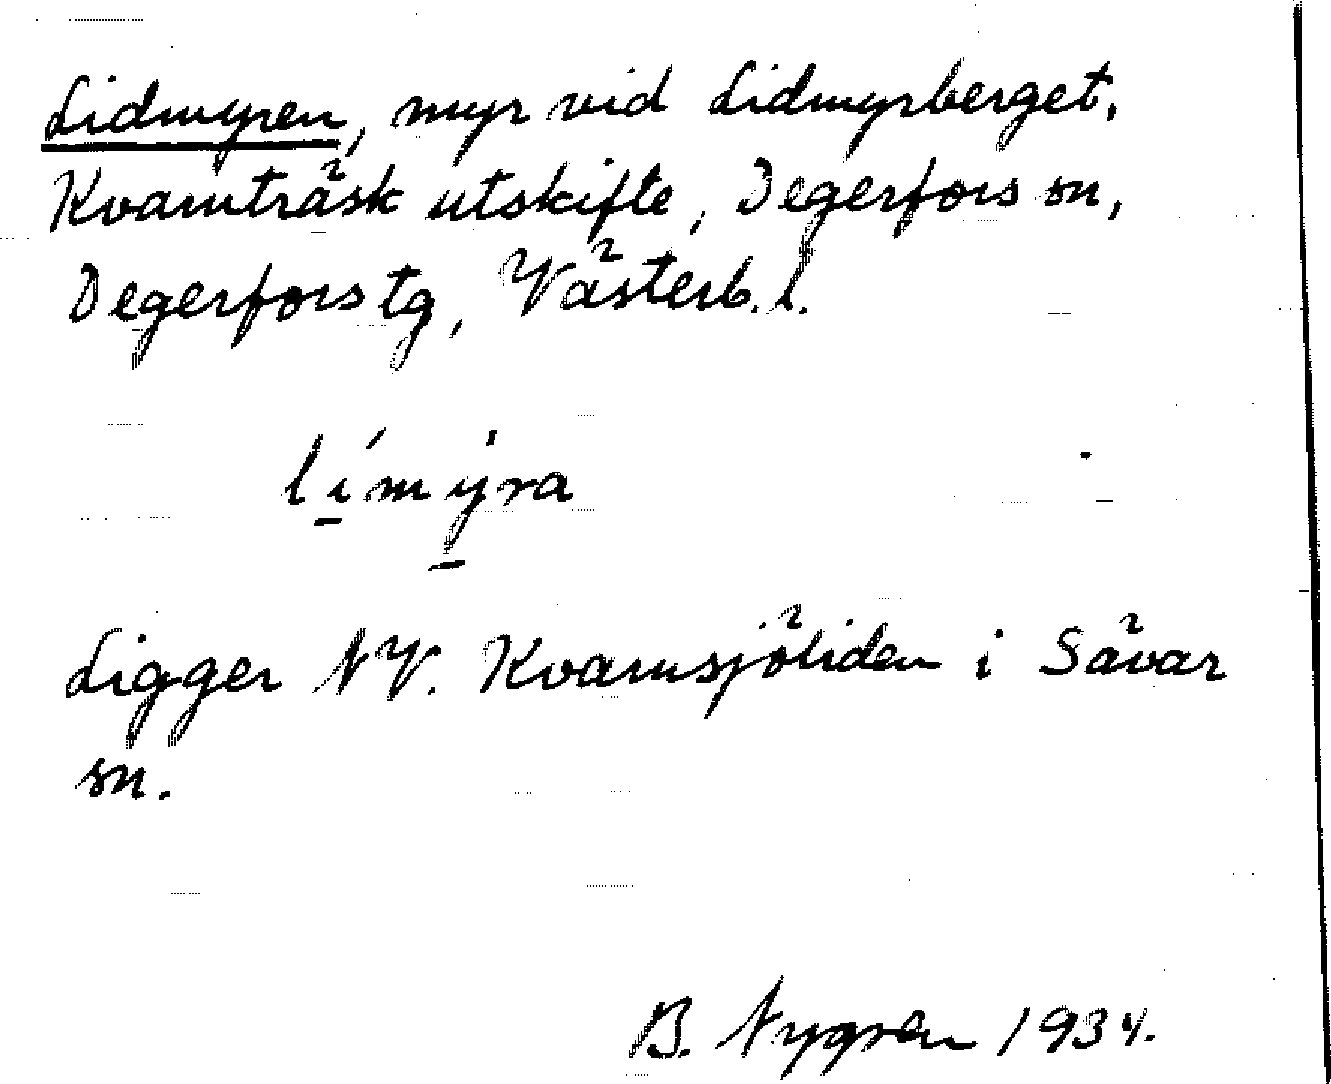 Lidmyren, myr vid Lidmyrberget,
Kvarnträsk utskifte, Degerfors sn,
Degerfors tg, Västerb. l.
li̱´mỳ̱ra
Ligger NV. Kvarnsjöliden i Sävar
sn.
B. Nygren 1934.